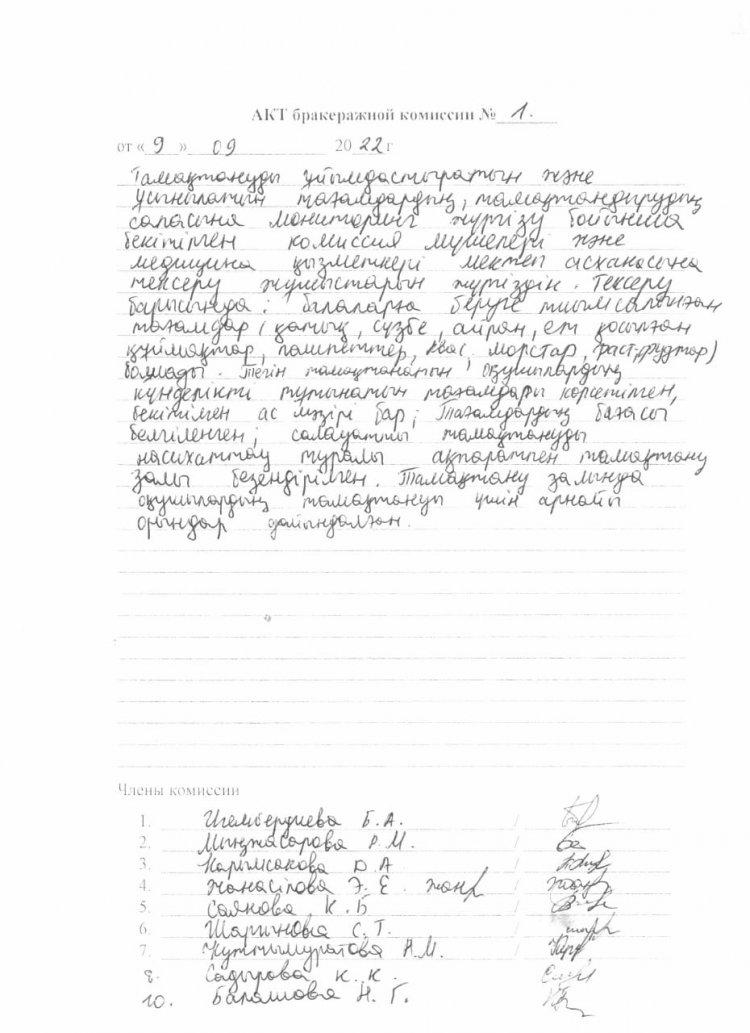 АКТ бракеражной комиссии № 1.
от « 9 » 09 2022 г
Тамақтануды ұйымдастыратын және
ұсынылатын тағамдардың, тамақтандырудың
сапасына мониторинг жүргізу бойынша
бекітілген комиссия мүшелері және
медицина қызметкері мектеп асханасына
тексеру жұмыстарын жүргіздік. Тексеру
барысында: балаларға беруге тиым салынған
тағамдар (қатық, сүзбе, айран, ет қосылған
құймақтар, паштеттер, квас, морстар, фастфудтар)
болмады. Тегін тамақтанатын оқушылардың
күнделікті тұтынатын тағамдары көрсетілген,
бекітілген ас мәзірі бар; Тағамдардың бағасы
белгіленген; салауатты тамақтануды
насихаттау туралы ақпаратпен тамақтану
залы безендірілген. Тамақтану залында
оқушылардың тамақтануы үшін арнайы
орындар дайындалған.
Члены комиссии
1. Игембердиева Б. А. /
2. Мыңжасарова Р. М. /
3. Карымсакова D. А /
4. Жанасілова Э. Е. жанр /
5. Саянова К. Б /
6. С. Т. /
7. Кутлымуратова А. М. /
8. Садырова К. К.
10. Балашова Н. Г.